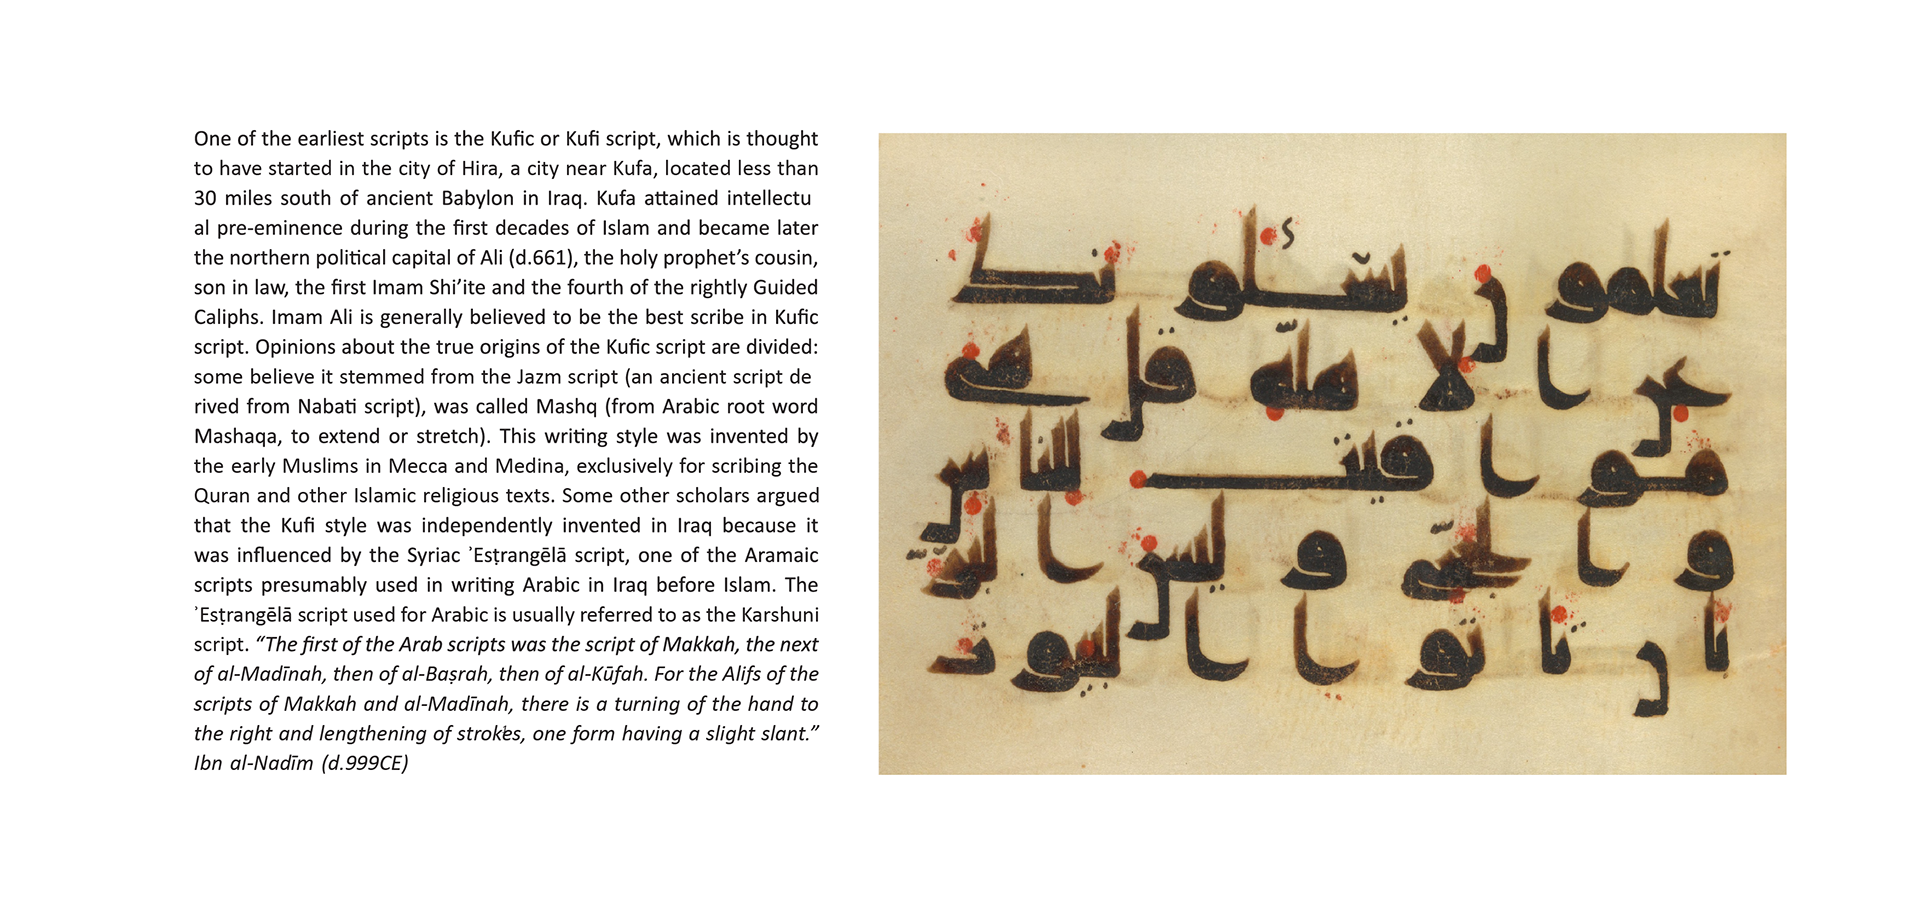 One of the earliest scripts is the Kufic or Kufi script, which is thought
to have started in the city of Hira, a city near Kufa, located less than
30 miles south of ancient Babylon in Iraq. Kufa attained intellectu
al pre-eminence during the first decades of Islam and became later
the northern political capital of Ali (d.661), the holy prophet’s cousin,
son in law, the first Imam Shi’ite and the fourth of the rightly Guided
Caliphs. Imam Ali is generally believed to be the best scribe in Kufic
script. Opinions about the true origins of the Kufic script are divided:
some believe it stemmed from the Jazm script (an ancient script de
rived from Nabati script), was called Mashq (from Arabic root word
Mashaqa, to extend or stretch). This writing style was invented by
the early Muslims in Mecca and Medina, exclusively for scribing the
Quran and other Islamic religious texts. Some other scholars argued
that the Kufi style was independently invented in Iraq because it
was influenced by the Syriac ʾEsṭrangēlā script, one of the Aramaic
scripts presumably used in writing Arabic in Iraq before Islam. The
ʾEsṭrangēlā script used for Arabic is usually referred to as the Karshuni
script. “The first of the Arab scripts was the script of Makkah, the next
of al-Madīnah, then of al-Baṣrah, then of al-Kūfah. For the Alifs of the
scripts of Makkah and al-Madīnah, there is a turning of the hand to
the right and lengthening of strokes, one form having a slight slant.”
Ibn al-Nadīm (d.999CE)
تعلمون يسئلونك
عن الاهلة قل هى
مواقيت للناس
والحج وليس البر
بان تاتوا البيوت